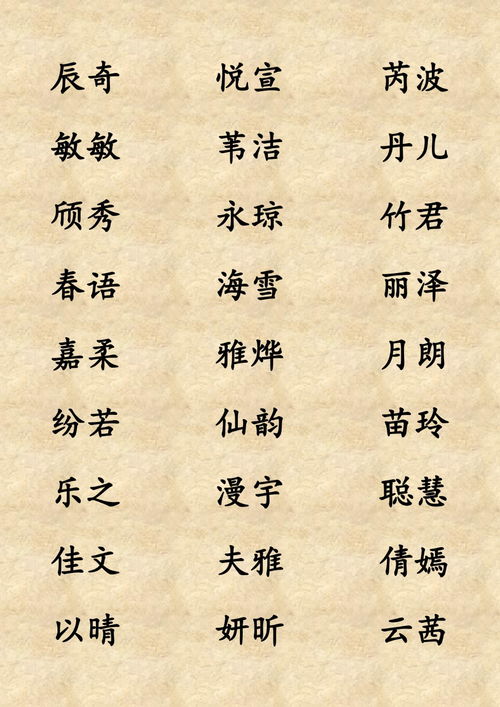 辰奇 悦宣 芮波
敏敏 苇洁 丹儿
颀秀 永琼 竹君
春语 海雪 丽泽
嘉柔 雅烨 月朗
纷若 仙韵 苗玲
乐之 漫宇 聪慧
佳文 夫雅 倩嫣
以晴 妍昕 云茜